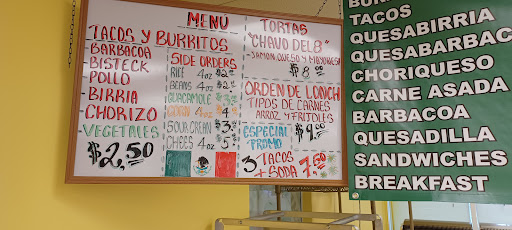 MENU
TACOS Y BURRITOS
BARBACOA
BISTECK
POLLO
BIRRIA
CHORIZO
VEGETALES
$2.50
SIDE ORDERS
RIFF 4oz $2
BEANS 4oz $2
GUACAMOLE $3
CORN 4oz $
SOUR CREAN $3
CHEES 4oz 5
TORTAS
"CHAVO DEL 8"
JAMON QUESO Y MAYONESA
$8
ORDEN DE LONCH
TIPOS DE CARNES
ARROZ Y FRIJOLES
$9
ESPECIAL
PROMO
3 TACOS + SODA 7.50
TACOS
QUESABIRRIA
QUESABARBAC
CHORIQUESO
CARNE ASADA
BARBACOA
QUESADILLA
SANDWICHES
BREAKFAST